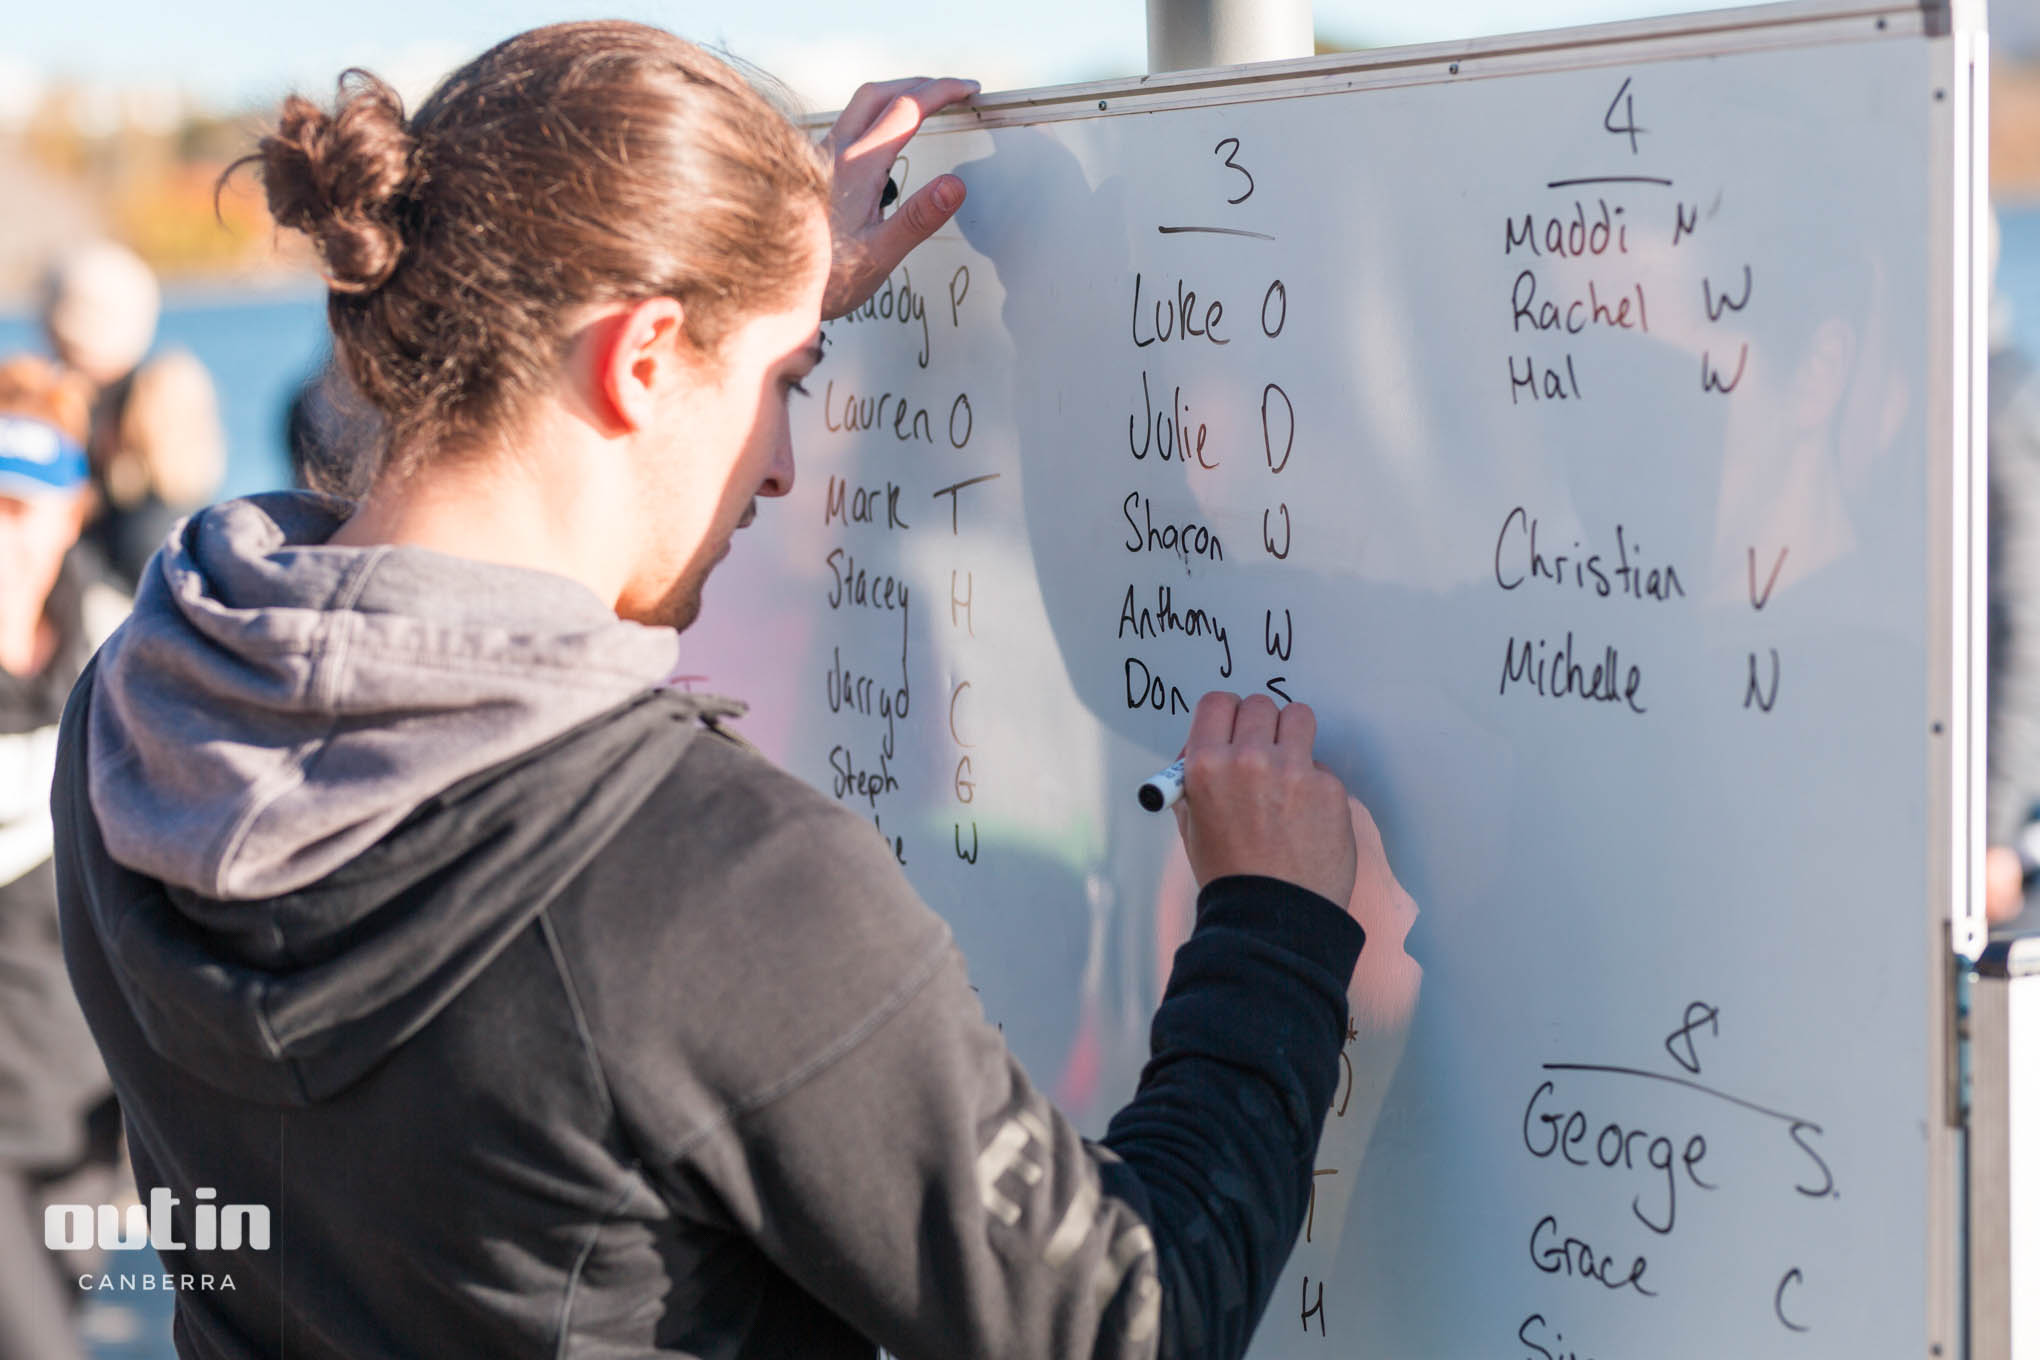 3
Luke O
Julie D
Sharon W
Anthony W
Don S
4
Maddi N
Rachel W
Hal W
Christian V
Michelle N
P
Lauren O
Mark T
Stacey H
Jarryd C
Steph G
W
8
George S.
Grace C
H
out in
CANBERRA